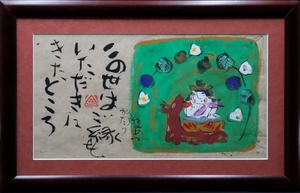 この世は
ご縁を
いただきに
きたところ